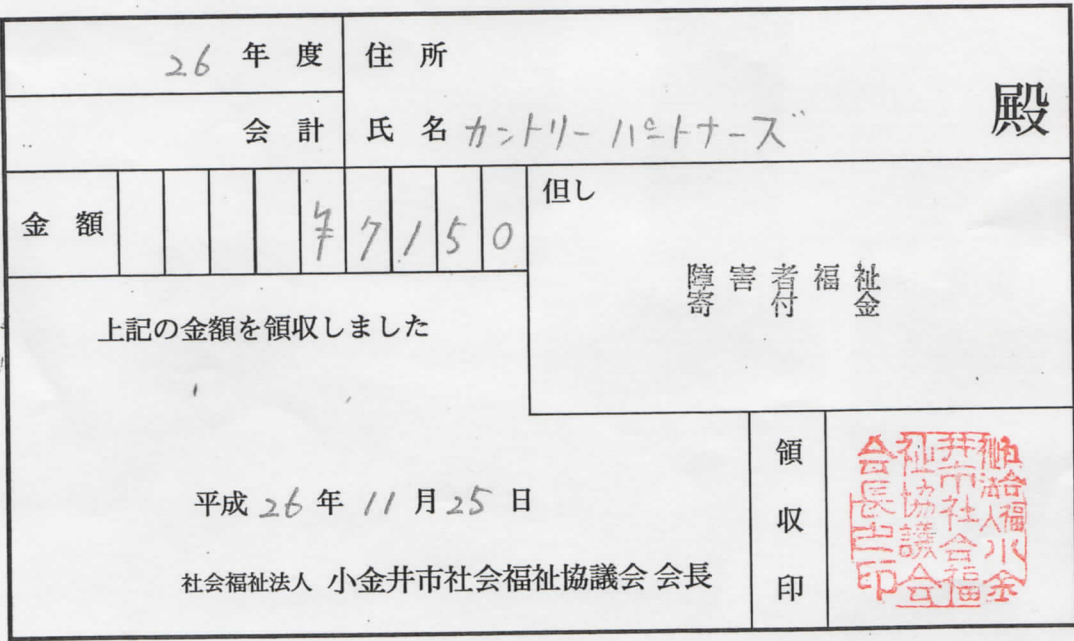 26 年度
住所
会計
氏名 カントリーパートナーズ 殿
金額 ¥7150
但し
障害者福祉
寄付金
上記の金額を領収しました
平成 26 年 11 月 25 日
社会福祉法人 小金井市社会福祉協議会 会長
領収印
社会福祉法人小金井市社会福祉協議会会長之印